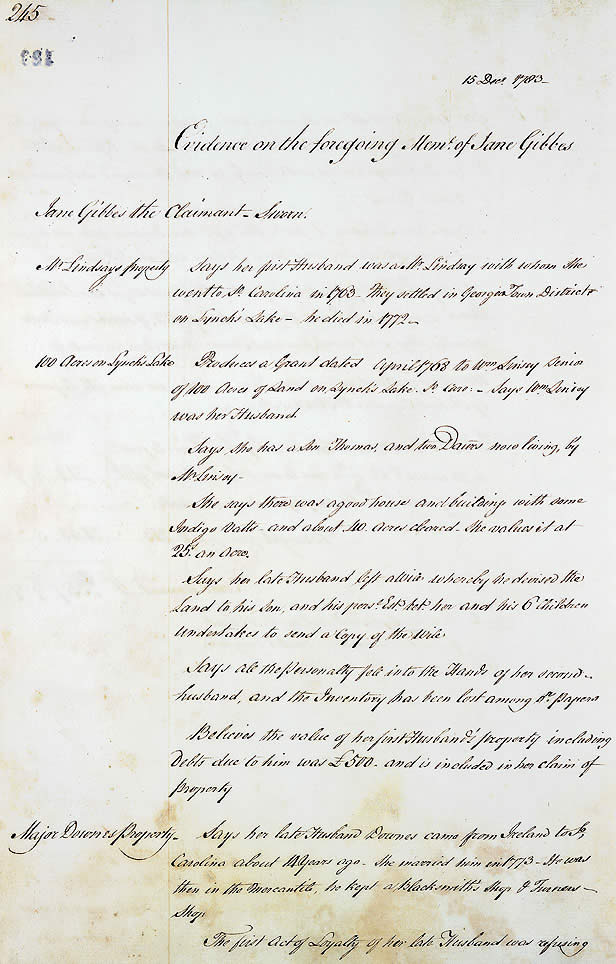 245
183
15 Decr. 1783-
Evidence on the foregoing Meml. of Jane Gibbes
Jane Gibbes the Claimant - Sworn.
Mr. Lindsays Property
Says her first Husband was a Mr. Lindsay with whom She
went to So. Carolina in 1763 - They settled in George Town District
on Lynch's Lake - he died in 1772 -
100 Acres on Lynch's Lake
Produces a Grant dated April 1768 to Wm. Linsey Senior
of 100 Acres of Land on Lynch's Lake. So. Caro: - Says Wm. Linsey
was her Husband.
Says, She has a Son Thomas, and two Daurs. now living, by
Mr. Linsey -
She says there was a good house and building with some
Indigo Vatts - and about 40 Acres cleared. She values it at
25s. an Acre.
Says her late Husband left a Will whereby he devised the
Land to his Son, and his persl. Est. bet. her and his 6 Children
Undertakes to send a Copy of the Will
Says all the Personalty fell into the Hands of her second -
husband, and the Inventory has been lost among Papers
Believes the value of her first Husband's property including
Debts due to him was £500 - and is included in her claim of
Property
Major Downes Property -
Says her late Husband Downes came from Ireland to So.
Carolina about 14 Years ago - She married him in 1773 - He was
then in the Mercantile, he kept a Blacksmith's Shop & Turners -
Shop
The first Act of Loyalty of her late Husband was refusing